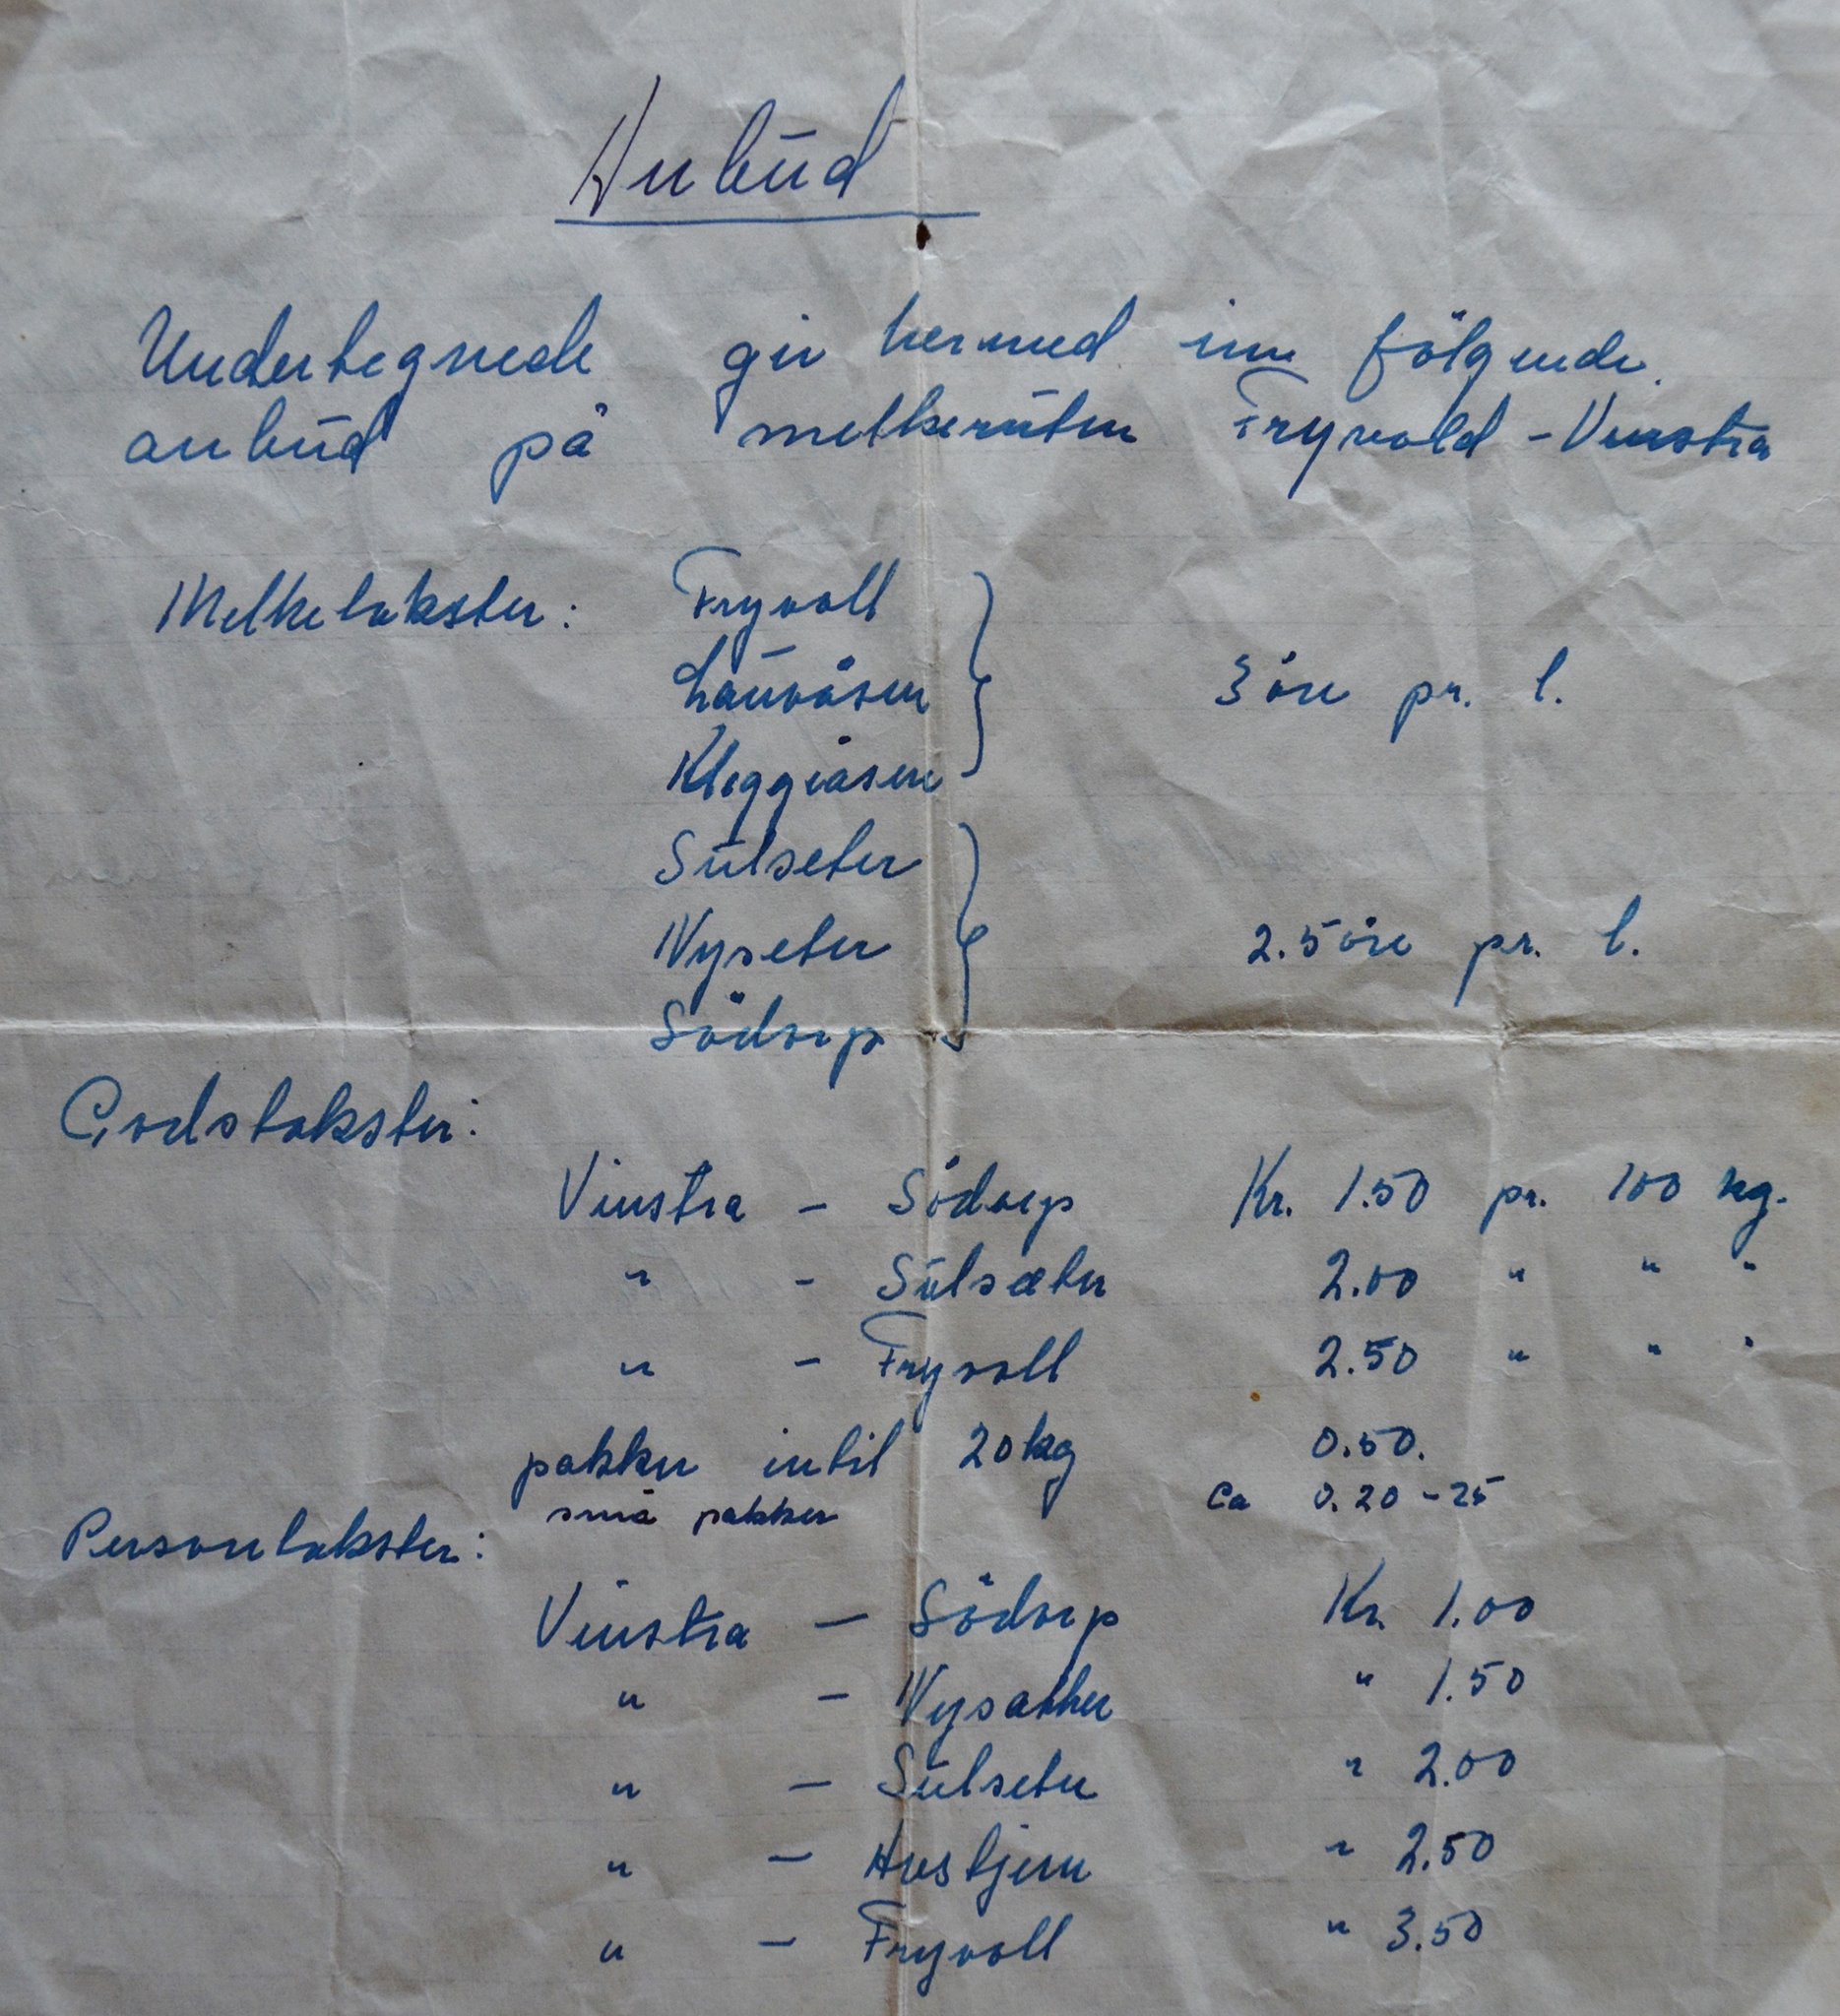 Anbud
Undertegnede gir hermed inn følgende
anbud på melkeruten Fryvold - Vinstra
Melketakster: Fryvoll
Lauvåsen 3 öre pr. l.
Kleggåsen
Sulseter
Nyseter 2.5 öre pr. l.
Södorp
Godstakster:
Vinstra - Södorp Kr. 1.50 pr. 100 kg.
" - Sulsæter 2.00 " " "
" - Fryvoll 2.50 " " "
pakker intil 20 kg 0.50.
små pakker ca 0.20 - 25
Persontakster:
Vinstra - Södorp Kr. 1.00
" - Nysæther " 1.50
" - Sulseter " 2.00
" - " 2.50
" - Fryvoll " 3.50